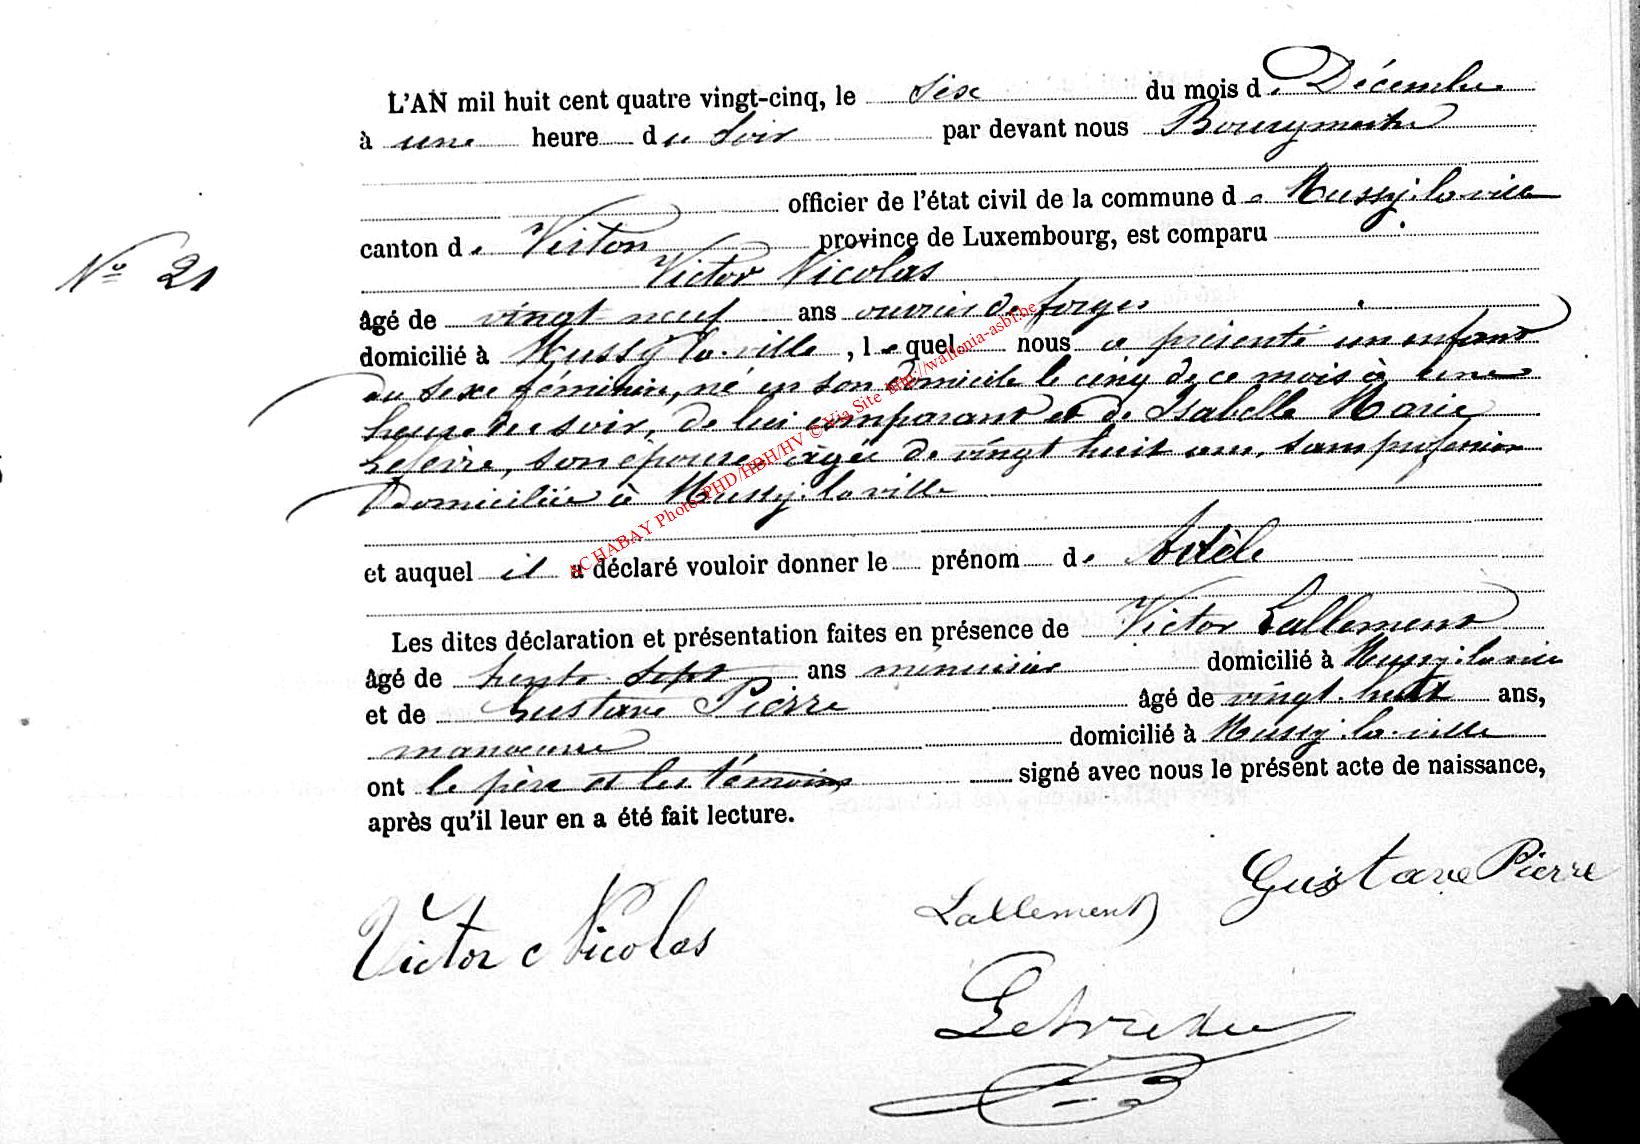 L'AN mil huit cent quatre vingt-cinq, le six du mois de Décembre
à une heure du soir par devant nous Bourgmestre
officier de l'état civil de la commune de Mussy-la-ville
canton de Virton province de Luxembourg, est comparu
Nº 21
Victor Nicolas
âgé de vingt neuf ans ouvrier de forges
domicilié à Mussy la-ville, lequel nous a présenté un enfant
du sexe féminin, né en son domicile le cinq de ce mois à une
heure du soir, de lui comparant et de Isabelle Marie
son épouse, âgée de vingt huit ans, sans profession
Domiciliée à Mussy-la ville
et auquel il a déclaré vouloir donner le prénom de Adèle
Les dites déclaration et présentation faites en présence de Victor Lallement
âgé de trente-sept ans menuisier domicilié à Mussy-la-ville
et de Gustave Pierre âgé de vingt-huit ans,
manoeuvre domicilié à Mussy-la-ville
ont le père et les témoins signé avec nous le présent acte de naissance,
après qu'il leur en a été fait lecture.
Gustave Pierre
Victor Nicolas
Lallement
ACHABAY Photo PHD/HBH/HV © Via Site http://wallonia-asbl.be